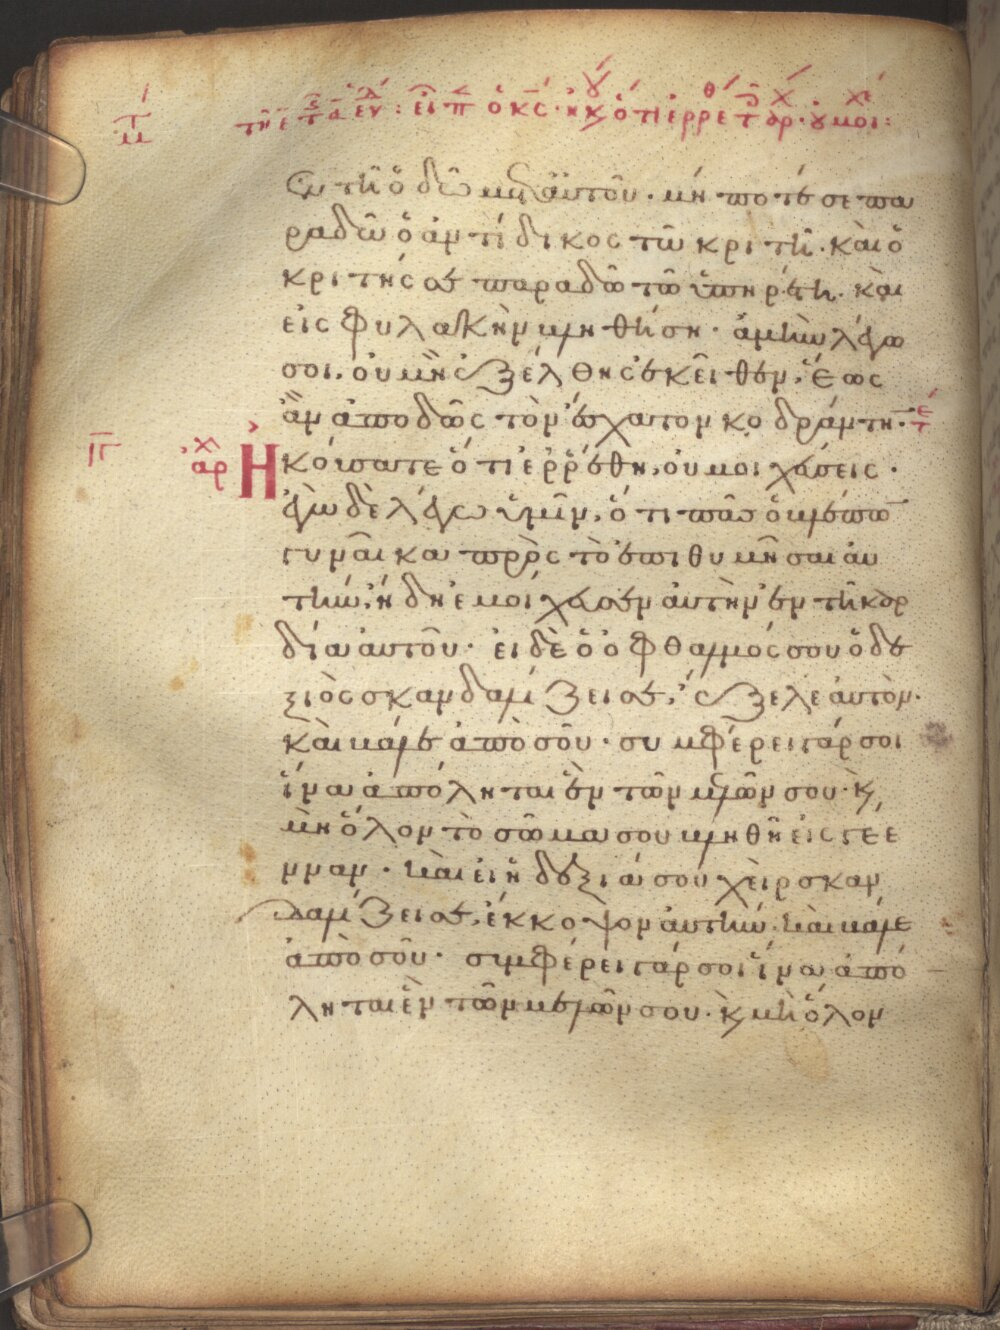 τῆ ε τ ευ: εἶπ ὁ κς· ἠκ ὅτι ἐρρεθ τ ἀρ· οὐ μοιχε:
ἐν τῆ ὁδῶ μετ αὐτοῦ· μήποτέ σε πα
ραδῶ ὁ ἀντίδικος τῶ κριτῆ· καὶ ὁ
κριτής σε παραδῶ τῶ ὑπηρέτη· καὶ
εἰς φυλακὴν βληθήση· ἀμὴν λέγω
σοι, οὐ μὴ ἐξέλθης ἐκεῖθεν, ἕως
ἂν ἀποδῶς τὸν ἔσχατον κοδράντην· τέ
ἀρχ Ἠκούσατε ὅτι ἐρρέθη, οὐ μοιχεύσεις·
ἐγὼ δὲ λέγω ὑμῖν, ὅτι πᾶς ὁ βλέπων
γυναῖκα πρὸς τὸ ἐπιθυμῆσαι αὐ
τὴν, ἤδη ἐμοίχευσεν αὐτὴν ἐν τῆ καρ
δία αὐτοῦ· εἰ δὲ ὁ ὀφθαλμός σου ὁ δε
ξιὸς σκανδαλίζει σε, ἔξελε αὐτὸν·
καὶ βάλε ἀπὸ σοῦ· συμφέρει γάρ σοι
ἵνα ἀπόληται ἓν τῶν μελῶν σου· κ
μὴ ὅλον τὸ σῶμα σου βληθῆ εἰς γέε
νναν· καὶ εἰ ἡ δεξιά σου χεὶρ σκαν
δαλίζει σε, ἔκκοψον αὐτὴν· καὶ βάλε
ἀπὸ σοῦ· συμφέρει γάρ σοι ἵνα ἀπό
ληται ἓν τῶν μελῶν σου· κ μὴ ὅλον